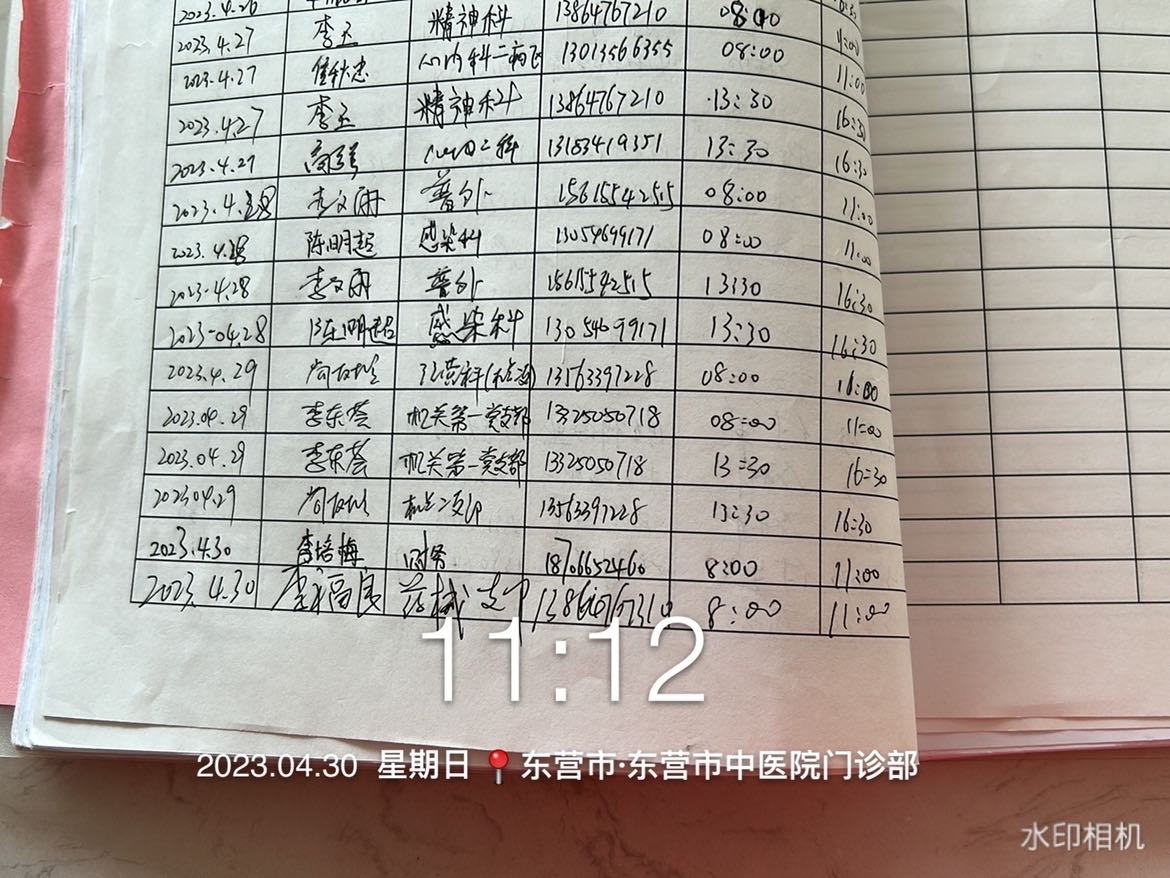 2023.4.26
2023.4.27 李玉 精神科 13864767210 08:00 11:00
2023.4.27 心内科二病区 13013566355 08:00 11:00
2023.4.27 李玉 精神科 13864767210 13:30 16:30
2023.4.27 13183419351 13:30 16:30
2023.4.28 李文雨 普外 15615542515 08:00 11:00
2023.4.28 陈明起 感染科 13054699171 08:00 11:00
2023.4.28 李文雨 普外 15615542515 13:30 16:30
2023-04.28 陈明起 感染科 13054699171 13:30 16:30
2023.4.29 13563397228 08:00
2023.04.29 李东荟 机关第一党支部 13325050718 08:00 11:00
2023.04.29 李东荟 机关第一党支部 13325050718 13:30 16:30
2023.04.29 13563397228 13:30 16:30
2023.4.30 李培梅 财务 18706652460 8:00 11:00
2023.4.30 药械支 8:00 11:00
11:12
2023.04.30 星期日 东营市·东营市中医院门诊部
水印相机